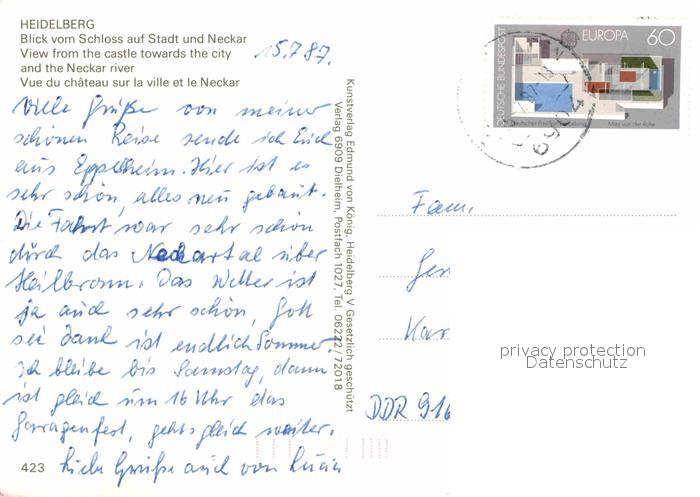 HEIDELBERG
Blick vom Schloss auf Stadt und Neckar
View from the castle towards the city
and the Neckar river
Vue du château sur la ville et le Neckar
15.7.87.
Viele Grüße von meiner
schönen Reise sende ich Euch
aus Eppelheim. Hier ist es
sehr schön, alles neu gebaut.
Die Fahrt war sehr schön
durch das Neckartal über
Heilbronn. Das Wetter ist
ja auch sehr schön, Gott
sei Dank ist endlich Sommer
Ich bleibe bis Samstag, dann
ist gleich um 16 Uhr das
Garragenfest, gehts gleich weiter.
Liebe Grüße auch von
423
Kunstverlag Edmund von König, Heidelberg V Gesetzlich geschützt
Verlag 6909 Dielheim, Postfach 1027, Tel. 06222/72018
DEUTSCHE BUNDESPOST
EUROPA 60
Deutscher Pavillon
Mies van der Rohe
6904
Fam.
Kar
DDR 916
privacy protection
Datenschutz